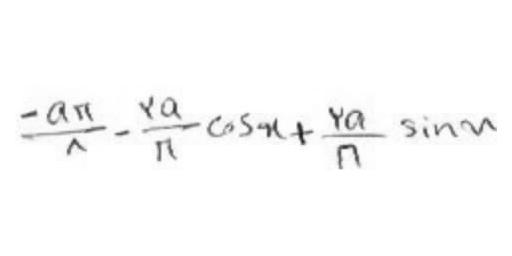 \frac{-aπ}{۸} - \frac{۲a}{π} cosx + \frac{۲a}{π} sinx